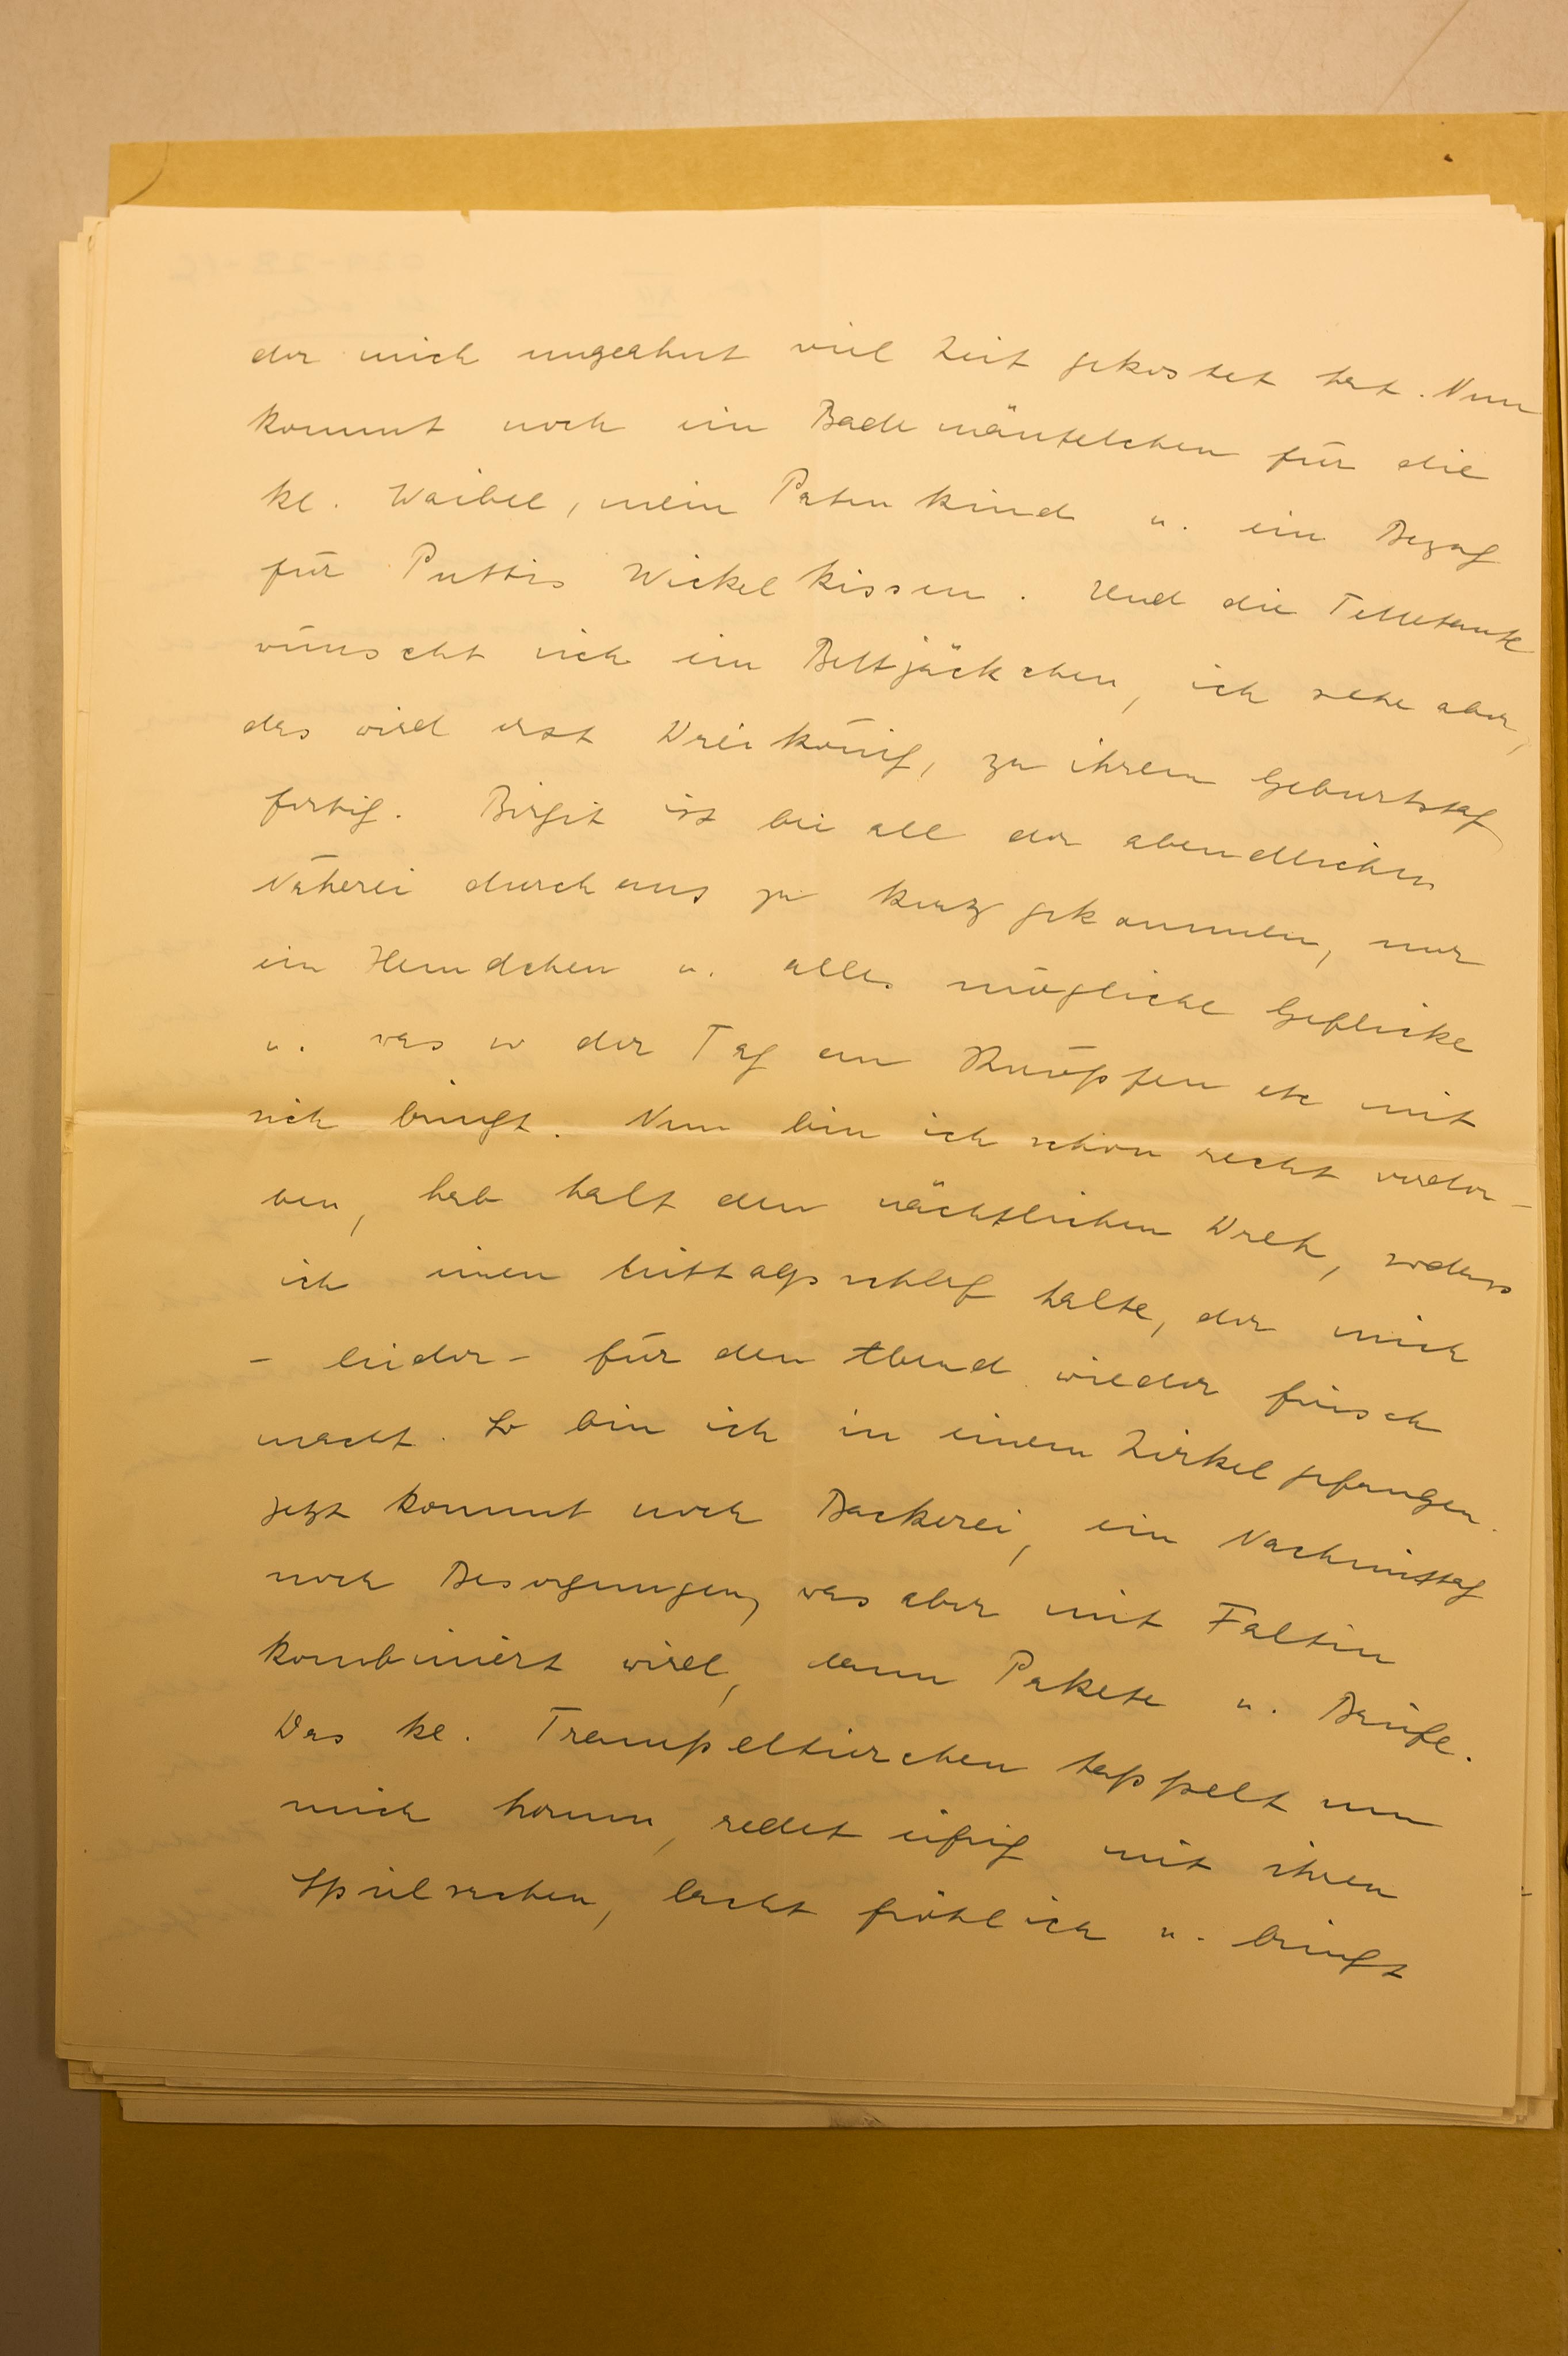 der mich ungeahnt viel Zeit gekostet hat. Nun
kommt noch ein Bademäntelchen für die
kl. Waibel, mein Patenkind u. ein Bezug
für Puttis Wickelkissen. Und die Telletante
wünscht sich ein Bettjäckchen, ich sehe aber,
das wird erst Dreikönig, zu ihrem Geburtstag
fertig. Birgit ist bei all der abendlichen
Näherei durchaus zu kurz gekommen, nur
ein Hemdchen u. alles mögliche Geflicke
u. was so der Tag an Knöpfen etc mit
sich bringt. Nun bin ich schon recht verdor-
ben, hab halt den nächtlichen Dreh, sodass
ich einen Mittagsschlaf halte, der mich
- leider - für den Abend wieder frisch
macht. So bin ich in einem Zirkel gefangen.
Jetzt kommt noch Backerei, ein Nachmittag
noch Besorgungen, was aber mit Faltin
kombiniert wird, dann Pakete u. Briefe.
Das kl. Trampeltierchen tappelt um
mich herum, redet eifrig mit ihren
Spielsachen, lacht fröhlich u. bringt